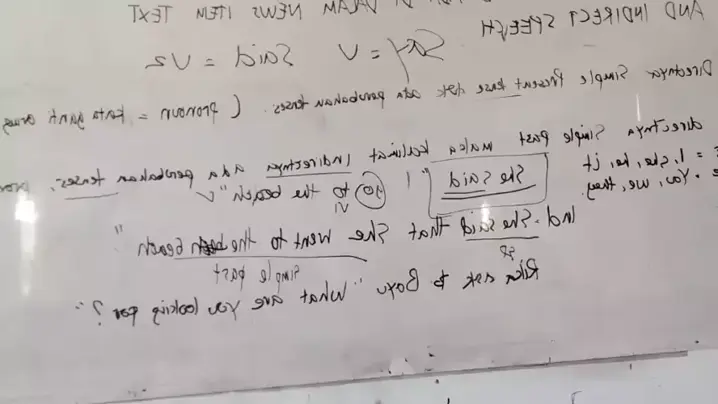 AND INDIRECT SPEECH DALAM NEWS ITEM TEXT
Say = V Said = V2
Directnya Simple Present tense ada perubahan tenses. (pronoun = kata ganti orang
directnya Simple past maka kalimat Indirectnya ada perubahan tenses,
= I, she, he, it
• You, we, they.
She said " I go to the beach "
V1 V
Ind. She said that She went to the beach "
SP Simple past
Rika ask to Bayu "What are you looking for?"